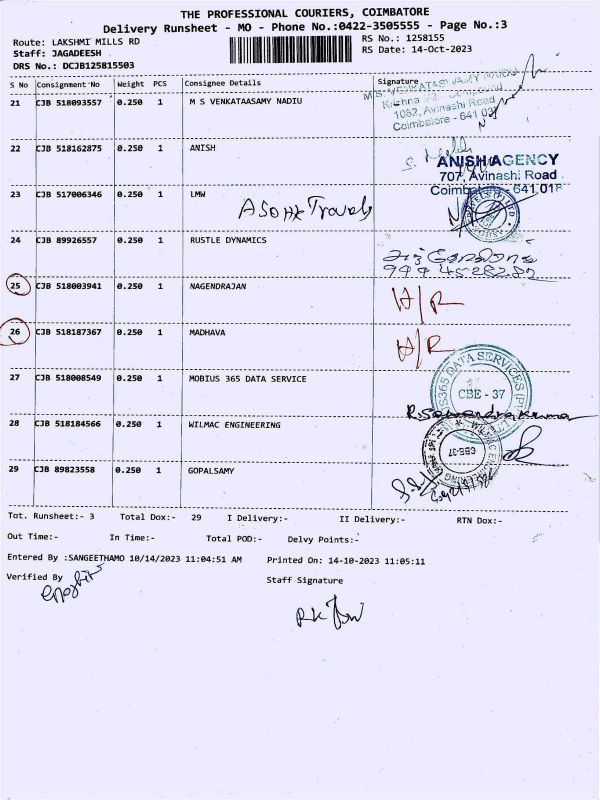 THE PROFESSIONAL COURIERS, COIMBATORE
Delivery Runsheet - MO - Phone No.:0422-3505555 - Page No.:3
Route: LAKSHMI MILLS RD
RS No.: 1258155
Staff: JAGADEESH
RS Date: 14-Oct-2023
DRS No.: DCJB125815503
S No Consignment No Weight PCS Consignee Details Signature
21 CJB 518093557 0.250 1 M S VENKATAASAMY NADIU
M/S. VENKATASWAMY NAIDU
Krishna
1082, Avinashi Road
Coimbatore - 641 037
22 CJB 518162875 0.250 1 ANISH
ANISH AGENCY
707, Avinasi Road
Coimbatore - 641 018
23 CJB 517006346 0.250 1 LMW
Travels
24 CJB 89926557 0.250 1 RUSTLE DYNAMICS
25 CJB 518003941 0.250 1 NAGENDRAJAN
H/R
26 CJB 518187367 0.250 1 MADHAVA
H/R
27 CJB 518008549 0.250 1 MOBIUS 365 DATA SERVICE
S365 DATA SERVICES (P)
CBE - 37
28 CJB 518184566 0.250 1 WILMAC ENGINEERING
WILMAC ENGINEERING
CBE-37
29 CJB 89823558 0.250 1 GOPALSAMY
Tot. Runsheet:- 3 Total Dox:- 29 I Delivery:- II Delivery:- RTN Dox:-
Out Time:- In Time:- Total POD:- Delvy Points:-
Entered By :SANGEETHAMO 10/14/2023 11:04:51 AM Printed On: 14-10-2023 11:05:11
Verified By
Staff Signature